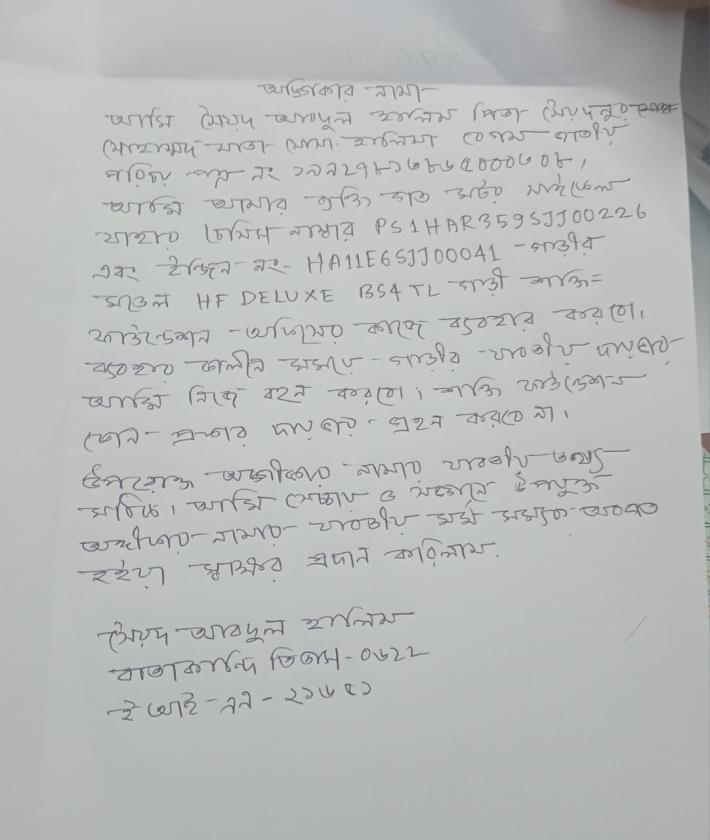 অঙ্গিকার নামা
আমি সৈয়দ আবদুল হালিম পিতা সৈয়দ নুর
মোহাম্মদ মাতা মোসা. হালিমা বেগম জাতীয়
পরিচয় পত্র নং
আমি আমার ব্যক্তি গত মটর সাইকেল
যাহার চেসিস নাম্বার PS1HAR359SJJ00226
এবং ইন্জিন নং- HA11E6SJJ00041 - গাড়ীর
মডেল HF DELUXE BS4TL গাড়ী শক্তি=
ফাউন্ডেশন - অফিসের কাজে ব্যবহার করবো।
ব্যবহার কালীন সময়ে - গাড়ীর - যাবতীয় দায়ভার-
আমি নিজে বহন করবো। শক্তি ফাউন্ডেশন
কোন - প্রকার দায়ভার - গ্রহন করবে না।
উপরোক্ত অঙ্গীকার - নামার যাবতীয় তথ্য
সঠিক। আমি সেচ্ছায় ও সজ্ঞানে উপযুক্ত
অঙ্গীকার - নামার - যাবতীয় মর্ম সম্যক অবগত
হইয়া স্বাক্ষর প্রদান করিলাম.
সৈয়দ আবদুল হালিম
বাতাকান্দি তিতাস - ০৬২২
ই আই - এন - ২১৬৫১